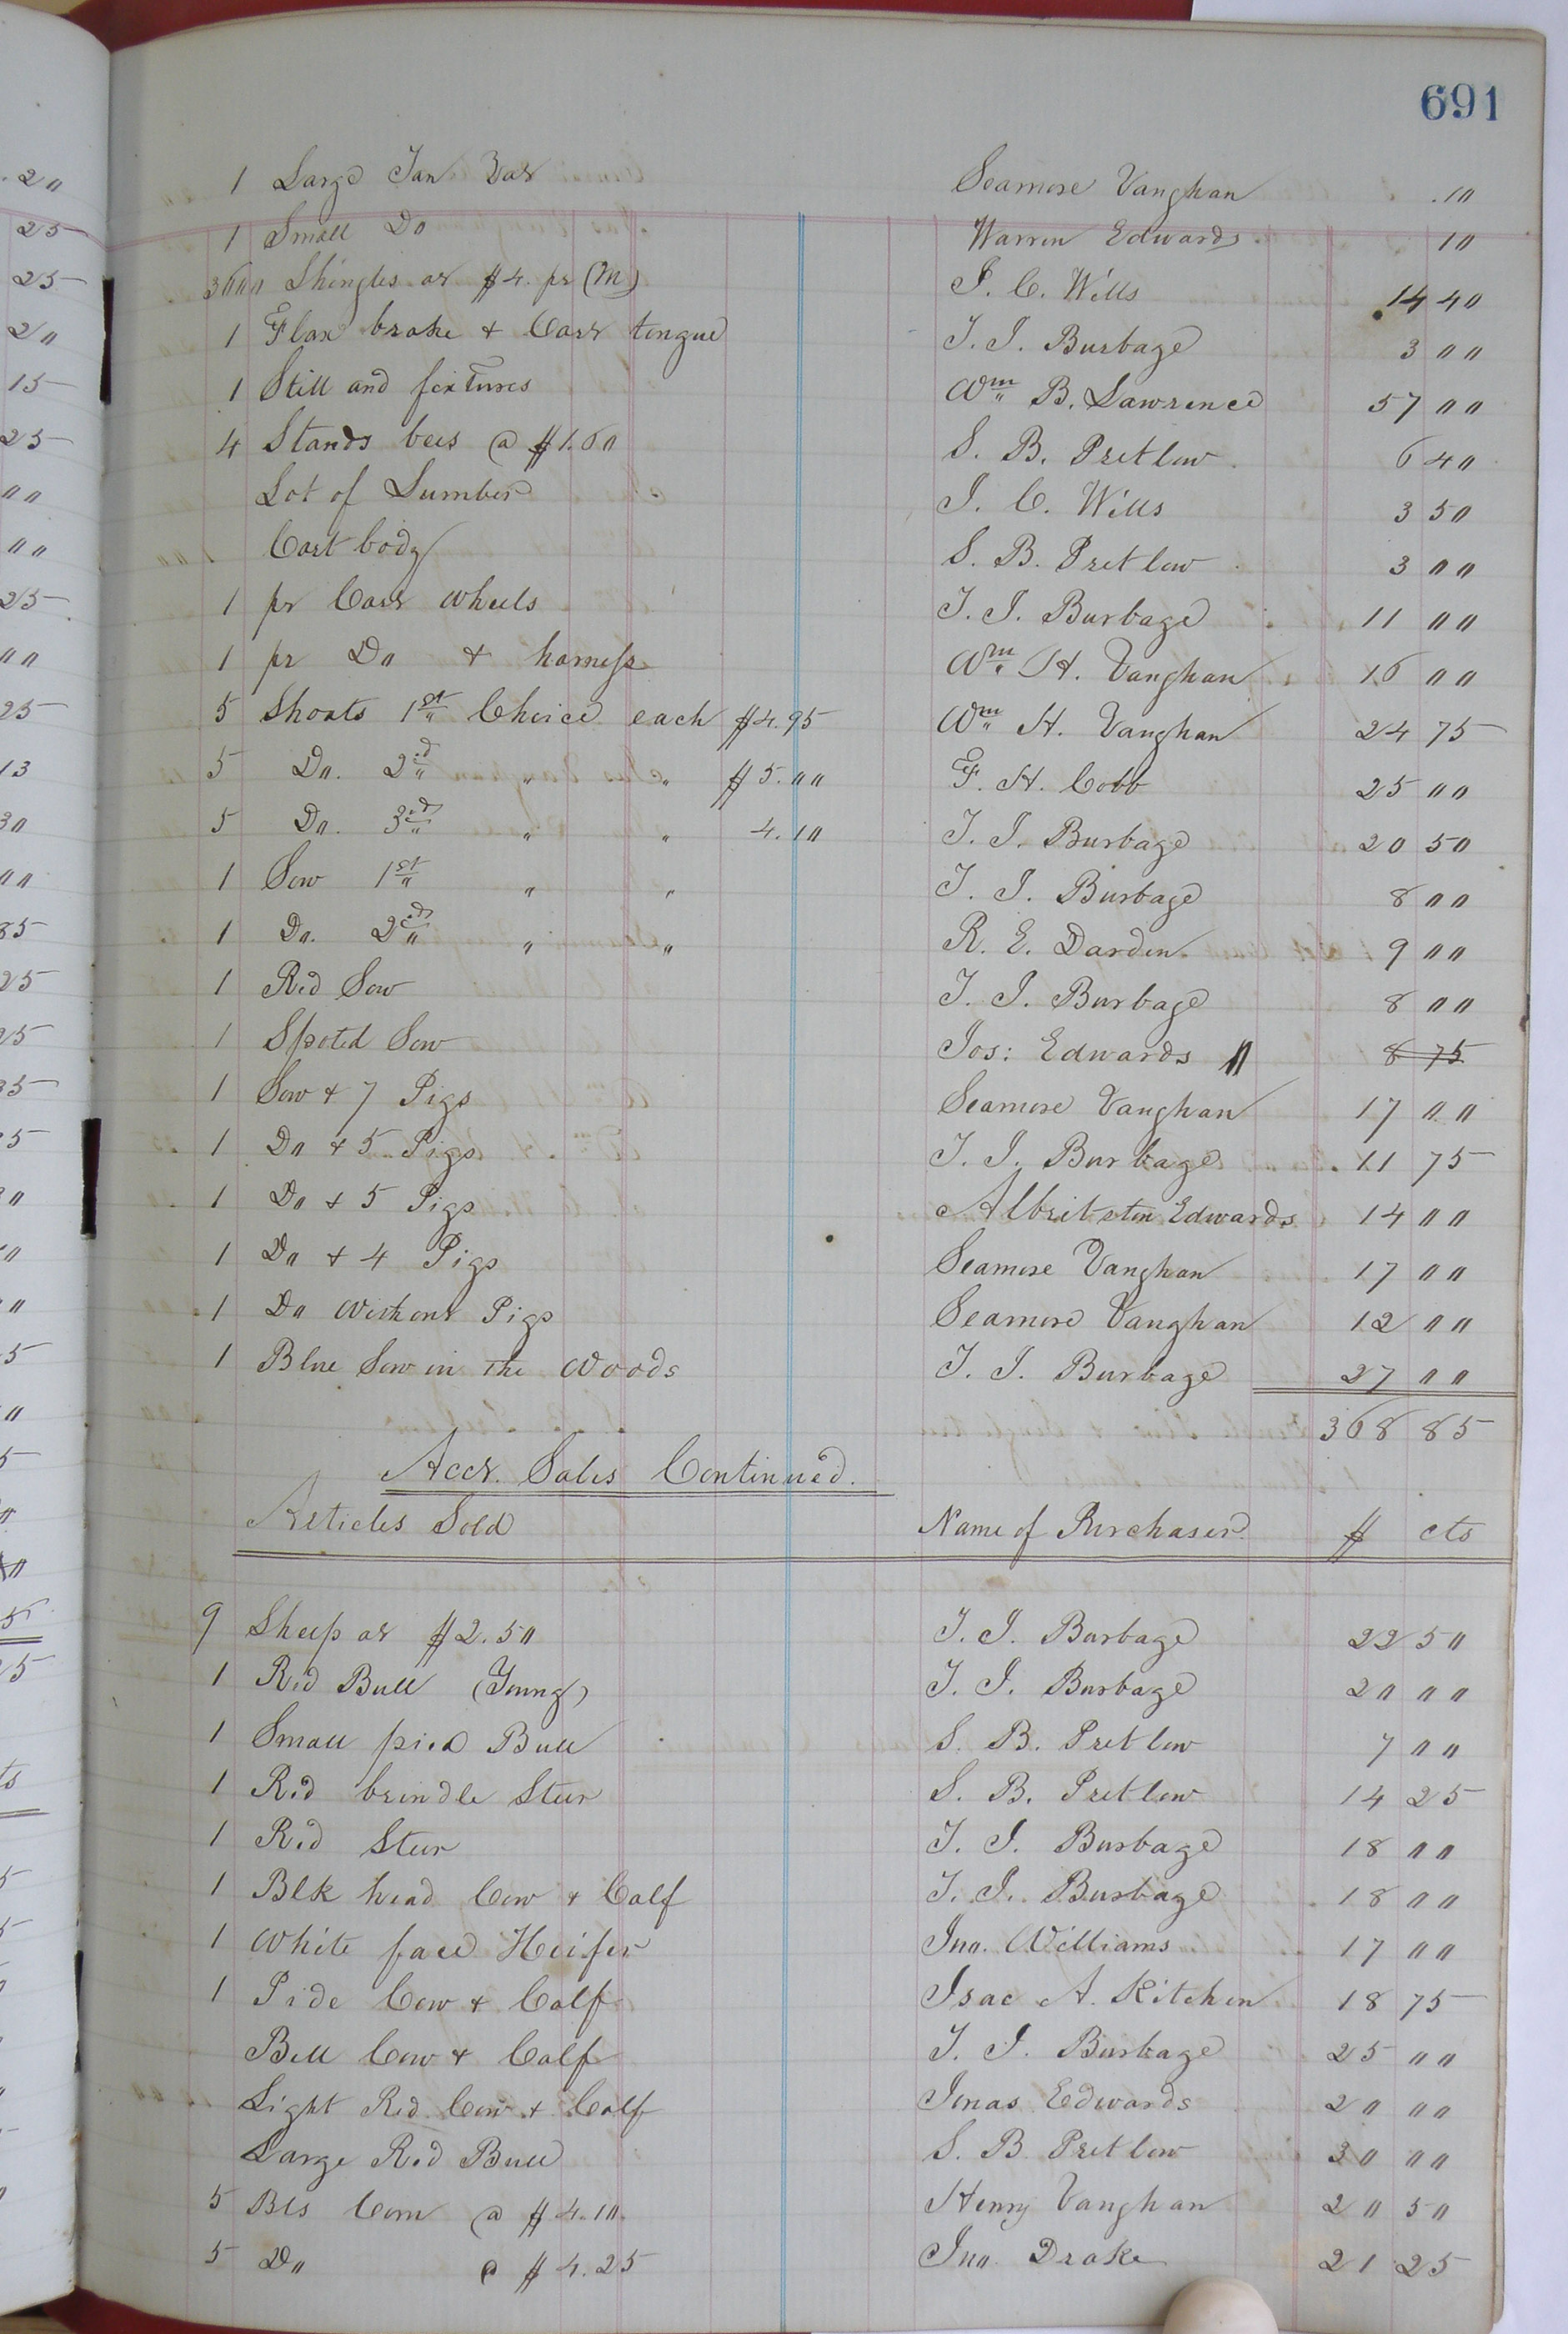 691
1 Large Tan Vat Seamore Vaughan .10
1 Small Do Warren Edwards 10
3600 Shingles at $4. pr (M) J. C. Wills 14 40
1 Flax brake & Cart tongue T. J. Burbage 3 00
1 Still and fixtures Wm B. Lawrence 57 00
4 Stands bees @ $1.60 S. B. Pretlow 6 40
Lot of Lumber J. C. Wills 3 50
Cart body S. B. Pretlow 3 00
1 pr Cart Wheels T. J. Burbage 11 00
1 pr Do & harness Wm H. Vaughan 16 00
5 Shoats 1st Choice each $4.95 Wm H. Vaughan 24 75
5 Do. 2d " " $5.00 F. H. Cobb 25 00
5 Do. 3d " " 4.10 T. J. Burbage 20 50
1 Sow 1st " " T. J. Burbage 8 00
1 Do. 2d " " R. E. Darden 9 00
1 Red Sow T. J. Burbage 8 00
1 Spoted Sow Jos: Edwards " 8 75
1 Sow & 7 Pigs Seamore Vaughan 17 00
1 Do & 5 Pigs T. J. Burbage 11 75
1 Do & 5 Pigs Albritston Edwards 14 00
1 Do & 4 Pigs Seamore Vaughan 17 00
1 Do Without Pigs Seamore Vaughan 12 00
1 Blue Sow in the Woods T. J. Burbage 27 00
368 85
Acct. Sales Continued.
Articles Sold Name of Purchaser $ cts
9 Sheep at $2.50 T. J. Burbage 22 50
1 Red Bull (Young) T. J. Burbage 20 00
1 Small pied Bull S. B. Pretlow 7 00
1 Red brindle Steer S. B. Pretlow 14 25
1 Red Steer T. J. Burbage 18 00
1 Blk head Cow & Calf T. J. Burbage 18 00
1 White face Heifer Jno. Williams 17 00
1 Pide Cow & Calf Isac A. Kitchen 18 75
Bell Cow & Calf T. J. Burbage 25 00
Light Red Cow & Calf Jonas Edwards 20 00
Large Red Bull S. B. Pretlow 30 00
5 Bls Corn @ $4.10. Henry Vaughan 20 50
5 Do @ $4.25 Jno. Drake 21 25